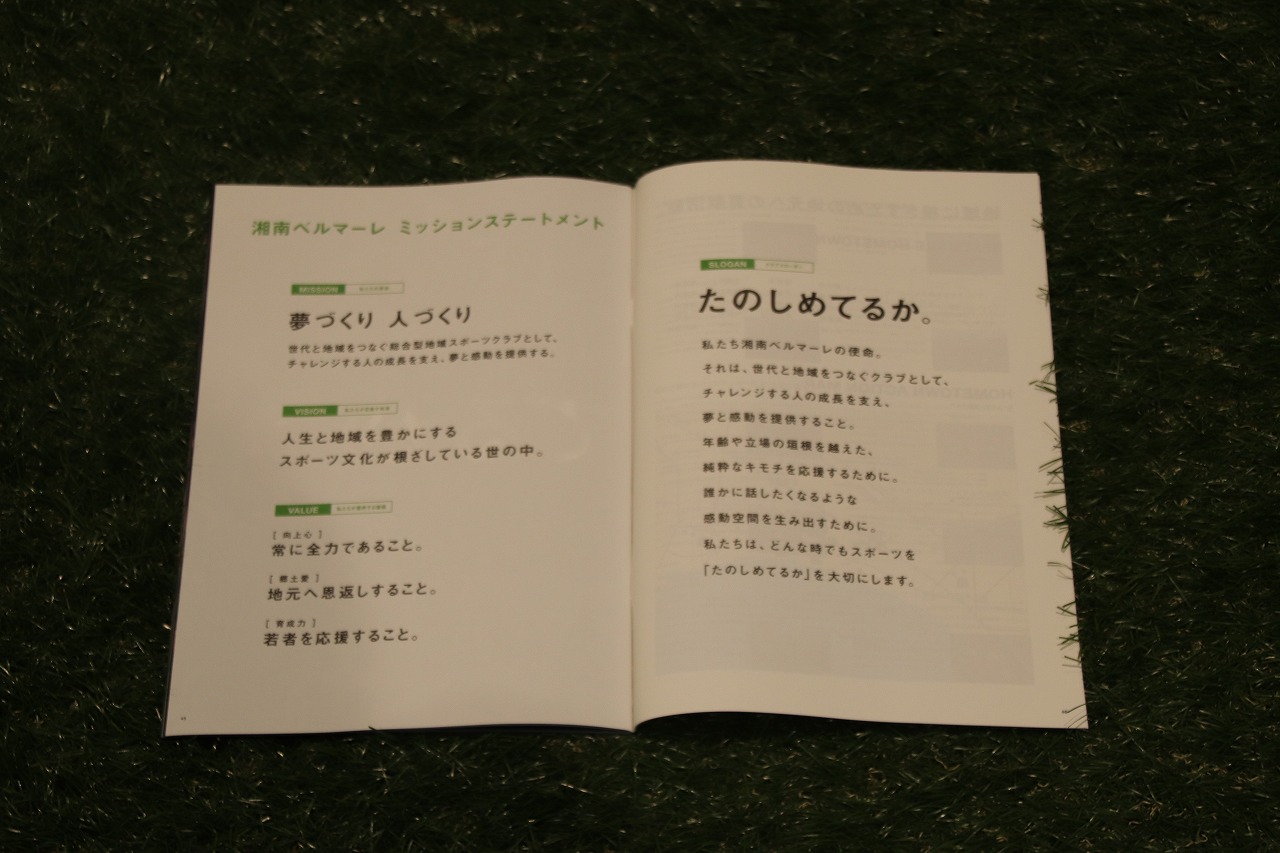 湘南ベルマーレ ミッションステートメント
MISSION
夢づくり 人づくり
世代と地域をつなぐ総合型地域スポーツクラブとして、
チャレンジする人の成長を支え、夢と感動を提供する。
VISION
人生と地域を豊かにする
スポーツ文化が根ざしている世の中。
VALUE
[ 向上心 ]
常に全力であること。
[ 郷土愛 ]
地元へ恩返しすること。
[ 育成力 ]
若者を応援すること。
SLOGAN
たのしめてるか。
私たち湘南ベルマーレの使命。
それは、世代と地域をつなぐクラブとして、
チャレンジする人の成長を支え、
夢と感動を提供すること。
年齢や立場の垣根を越えた、
純粋なキモチを応援するために。
誰かに話したくなるような
感動空間を生み出すために。
私たちは、どんな時でもスポーツを
「たのしめてるか」を大切にします。